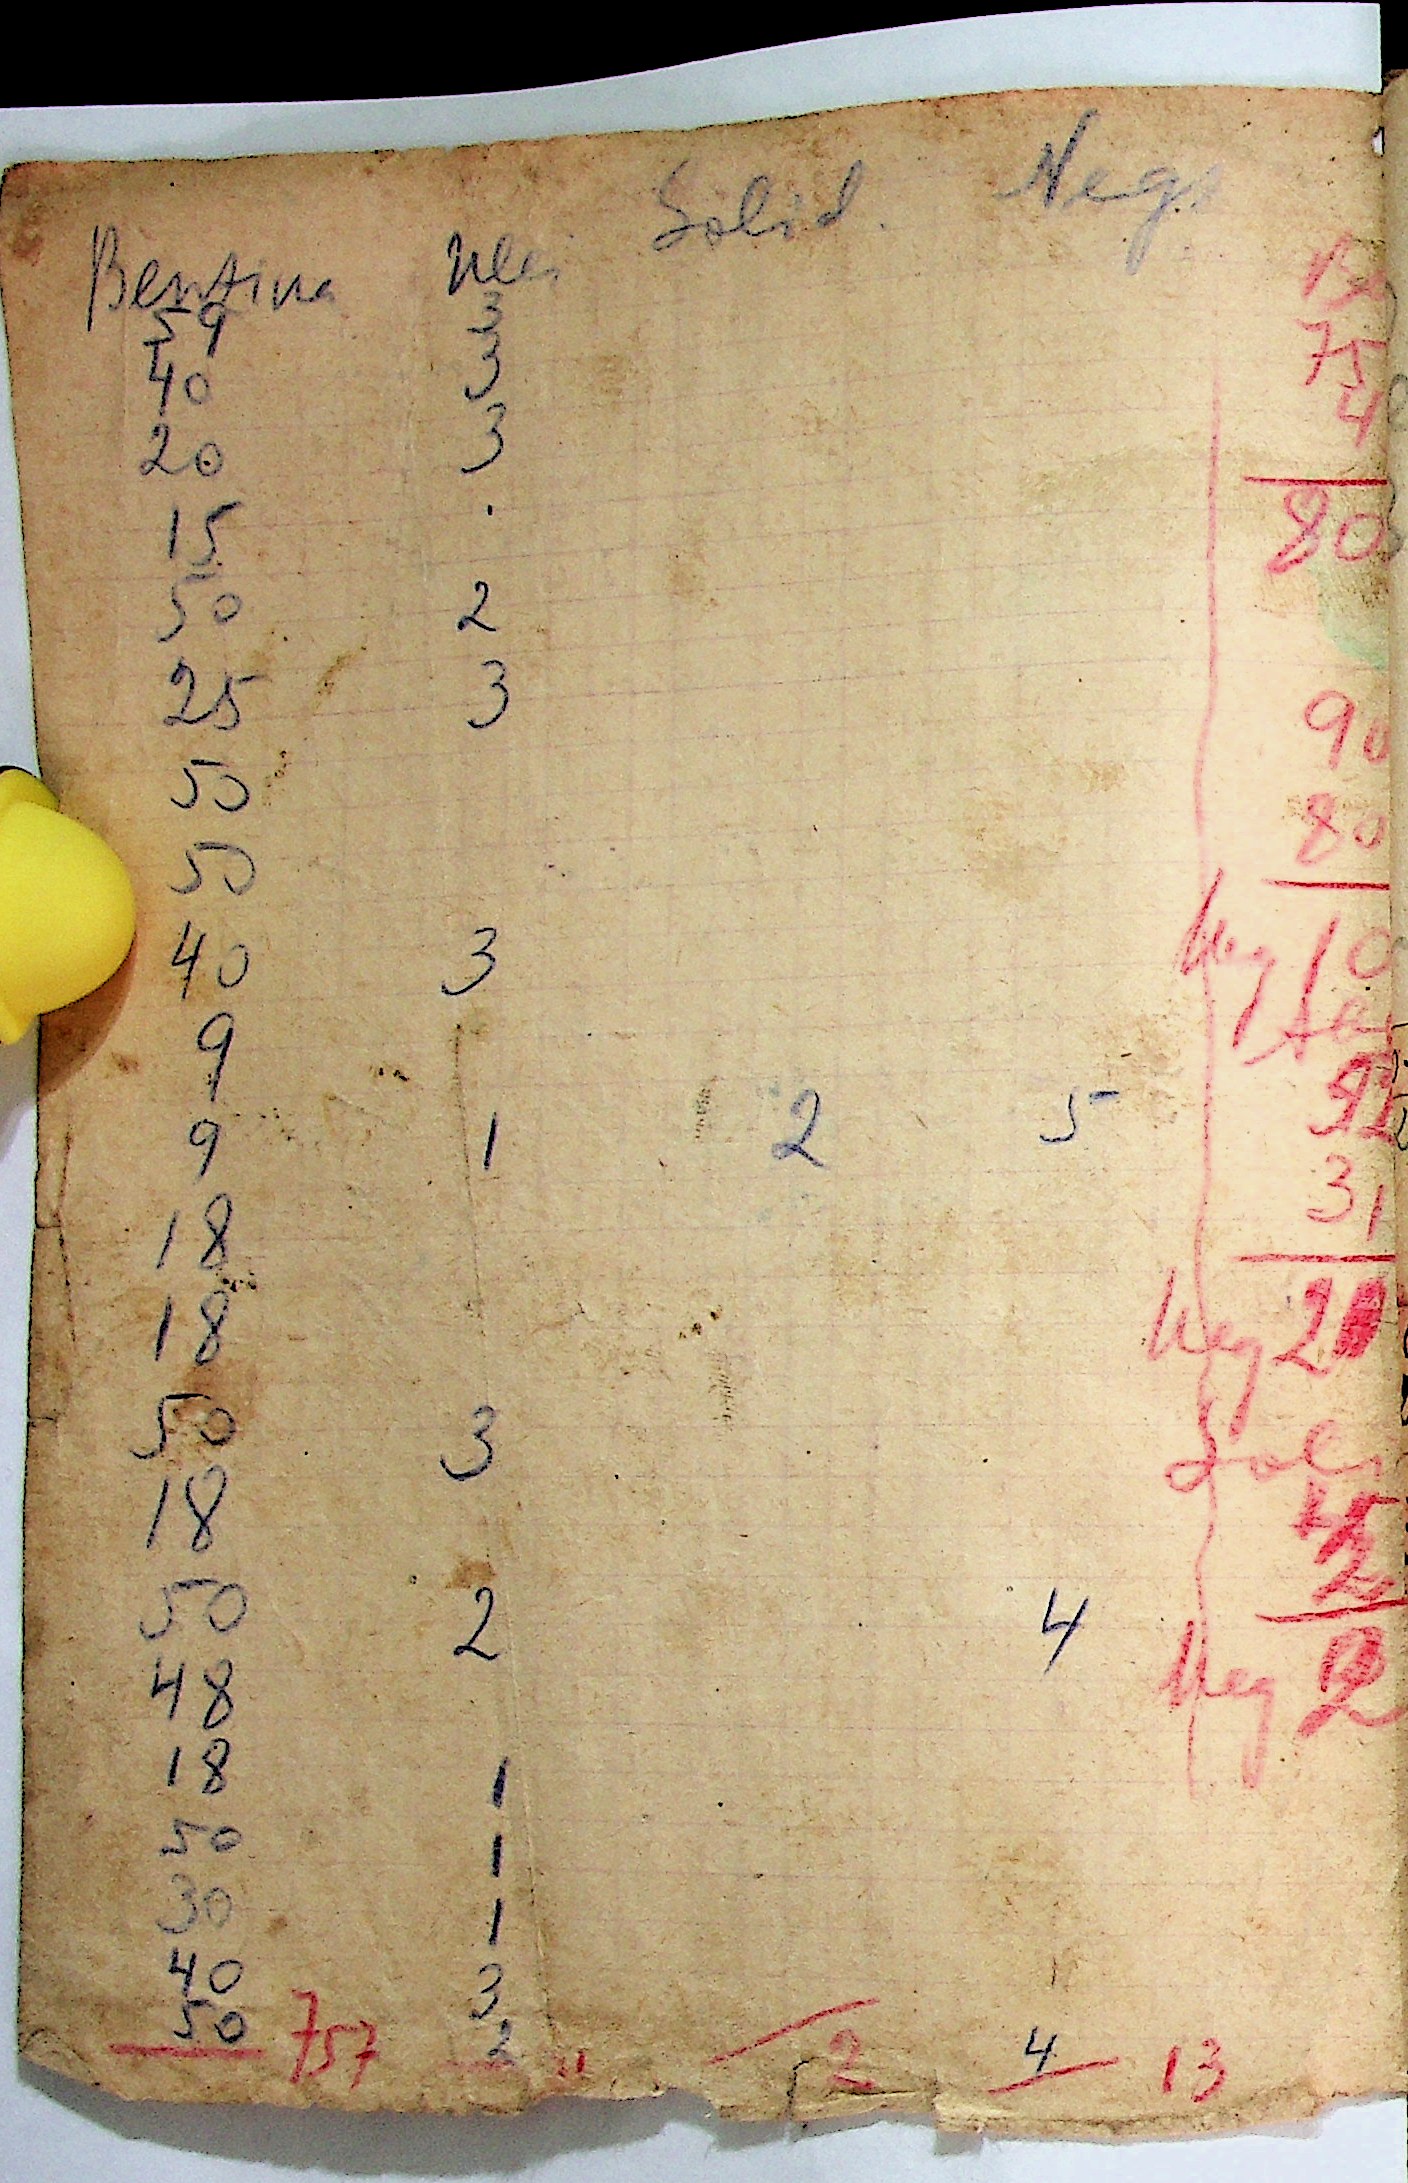 Solid. Negr
Bentina Ulei
59 3
40 3
20 3
15 .
50 2
25 3
50
50
40 3
9
9 1 2 5
18
18
50 3
18
50 2 4
48
18 1
50 1
30 1
40 3
50 757 2 2 4 13
75
4
80
90
80
Neg 10
31
Neg 2
Soli
2
Neg 2